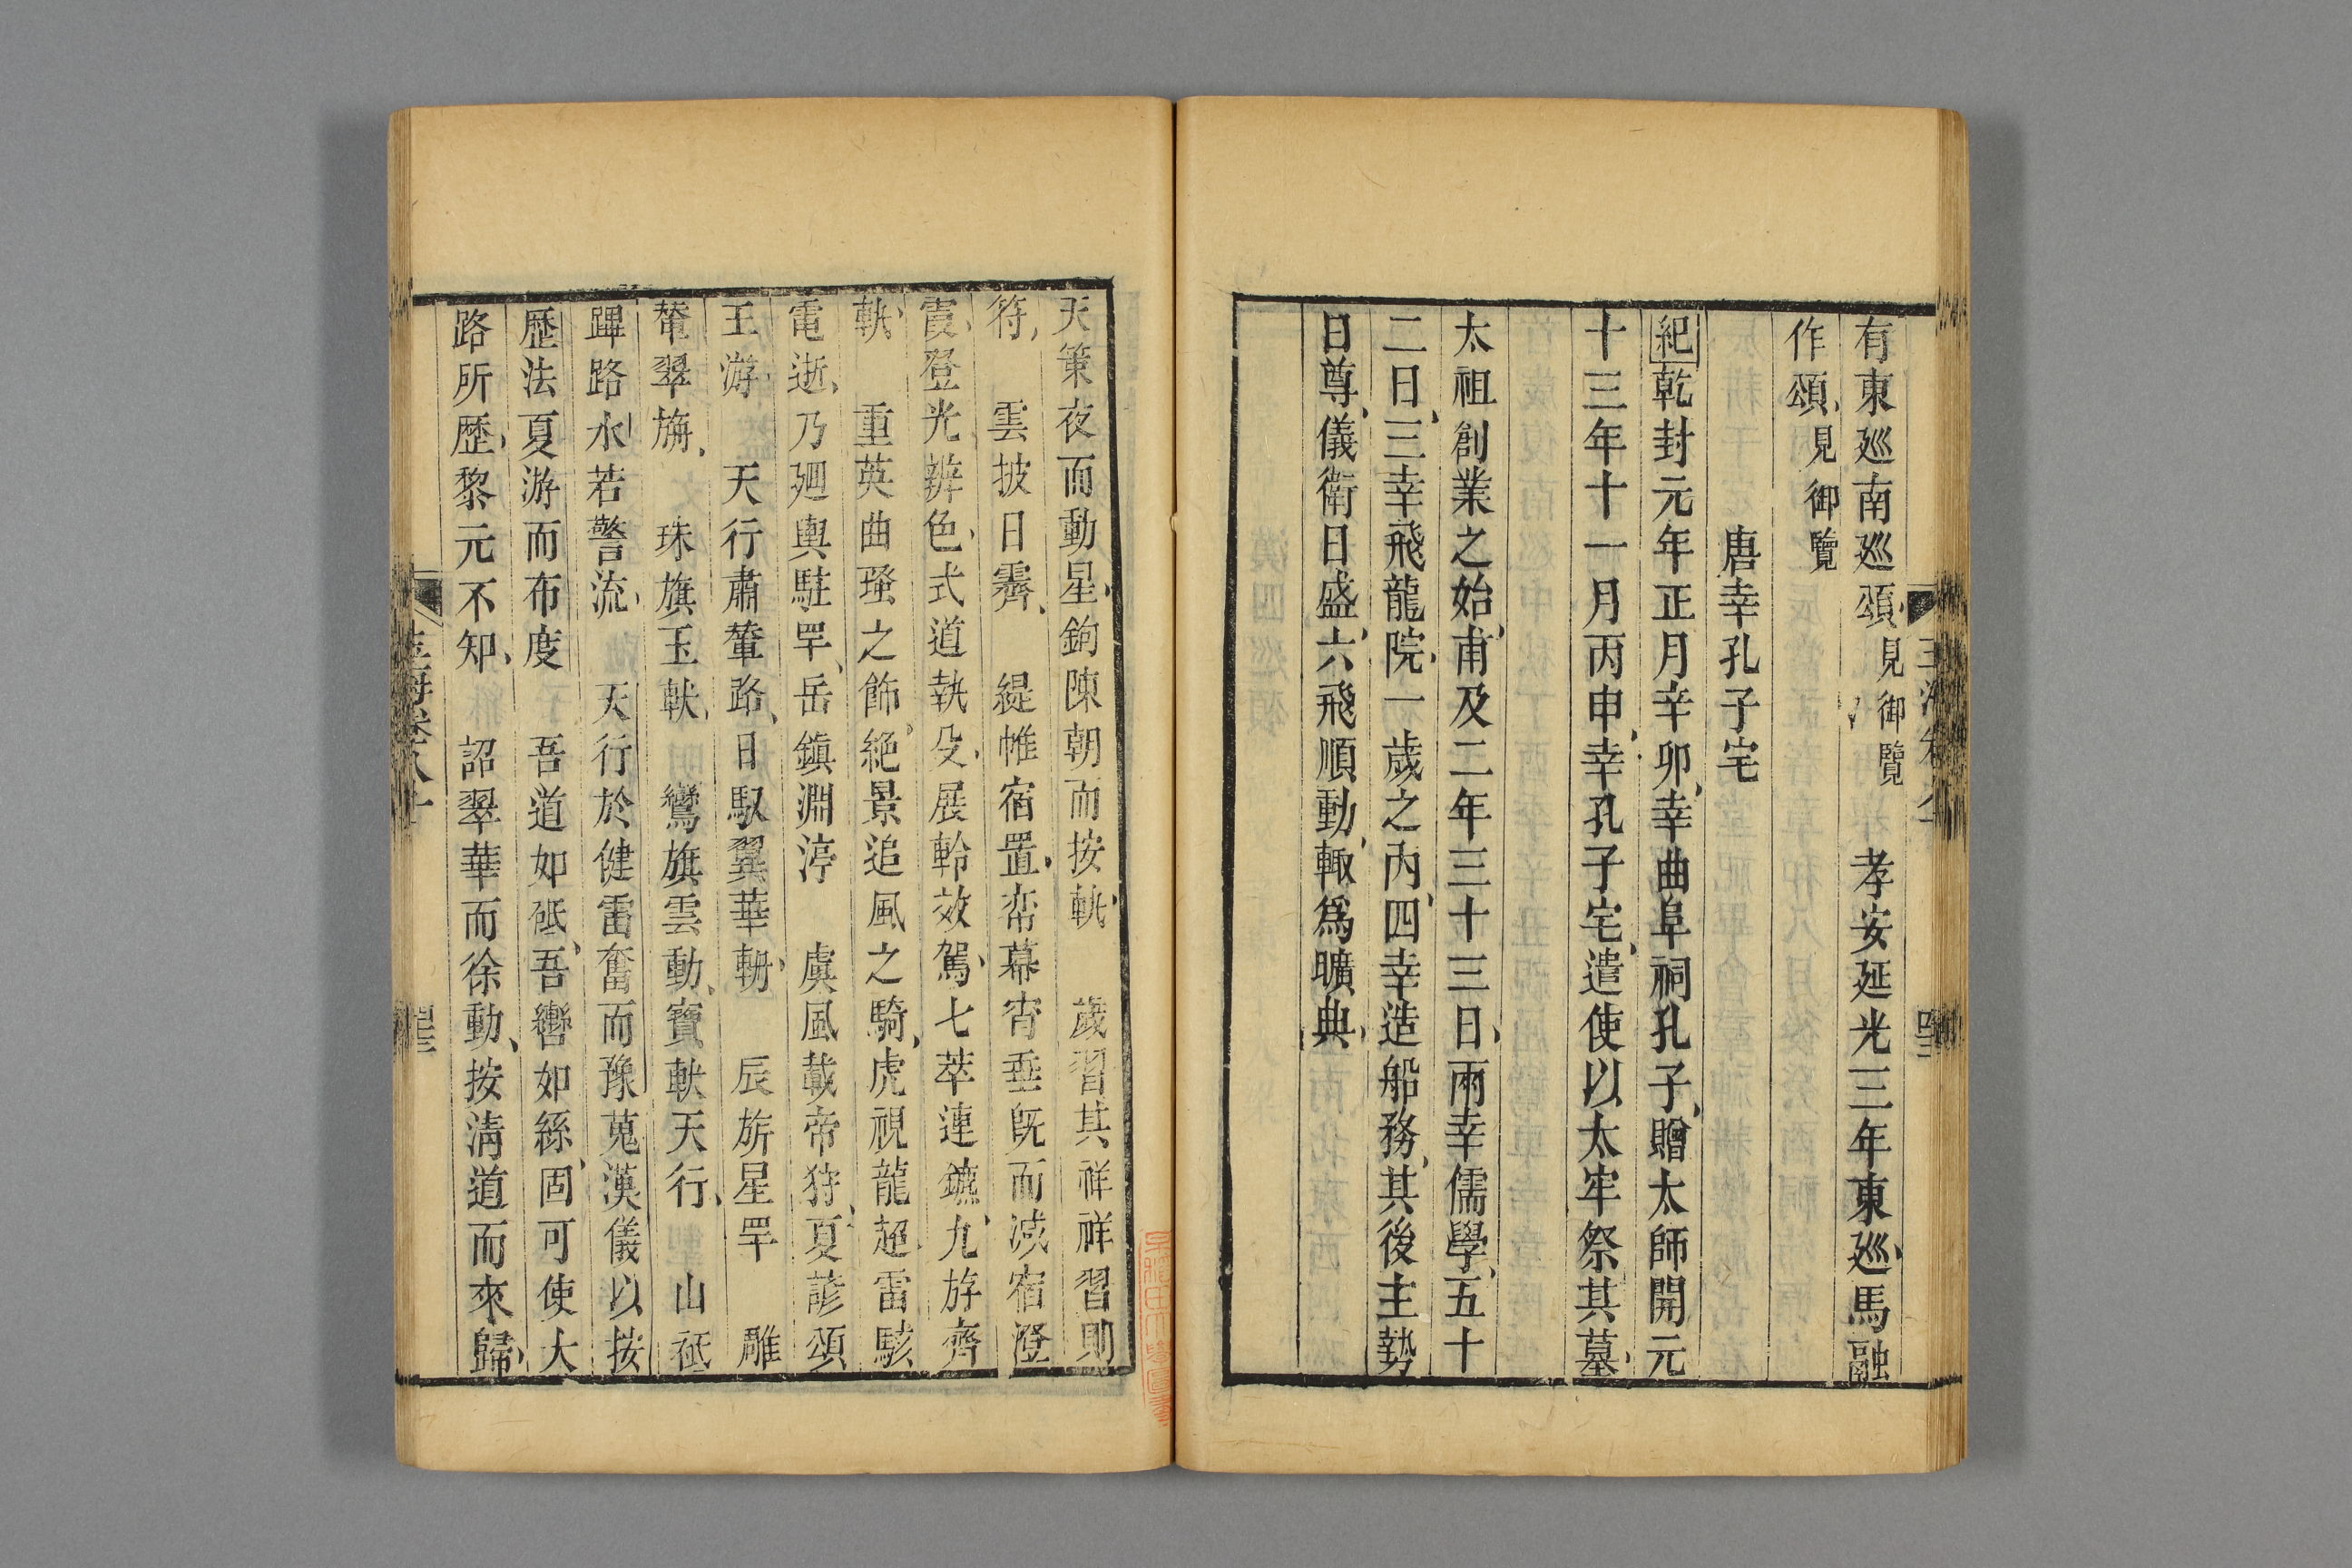 有東廵南廵頌見御覽 孝安延光三年東廵馬融
作頌見御覽
唐幸孔子宅
紀乾封元年正月辛卯幸曲阜祠孔子贈太師開元
十三年十一月丙申幸孔子宅遣使以太牢祭其墓
太祖創業之始甫及二年三十三日兩幸儒學五十
二日三幸飛龍院一歲之內四幸造船務其後主勢
日尊儀衛日盛六飛順動輙爲曠典
天策夜而動星鉤陳朝而按軌 歲習其祥祥習則
符 雲披日霽 緹帷宿置帟幕宵垂旣而滅宿澄
霞登光辨色式道執殳展軨效駕七萃連鑣九斿齊
軌 重英曲瑵之飾絶景追風之騎虎視龍超雷駭
電逝乃廻輿駐罕岳鎮淵渟 虞風載帝狩夏諺頌
王游 天行肅輦路日馭翼華輈 辰旂星罕 雕
輦翠旃 珠旗玉軑 鸞旗雲動寶軑天行 山祗
蹕路水若警流 天行於健雷奮而豫蒐漢儀以按
歷法夏游而布度 吾道如砥吾轡如絲固可使大
路所歷黎元不知 詔翠華而徐動按淸道而來歸